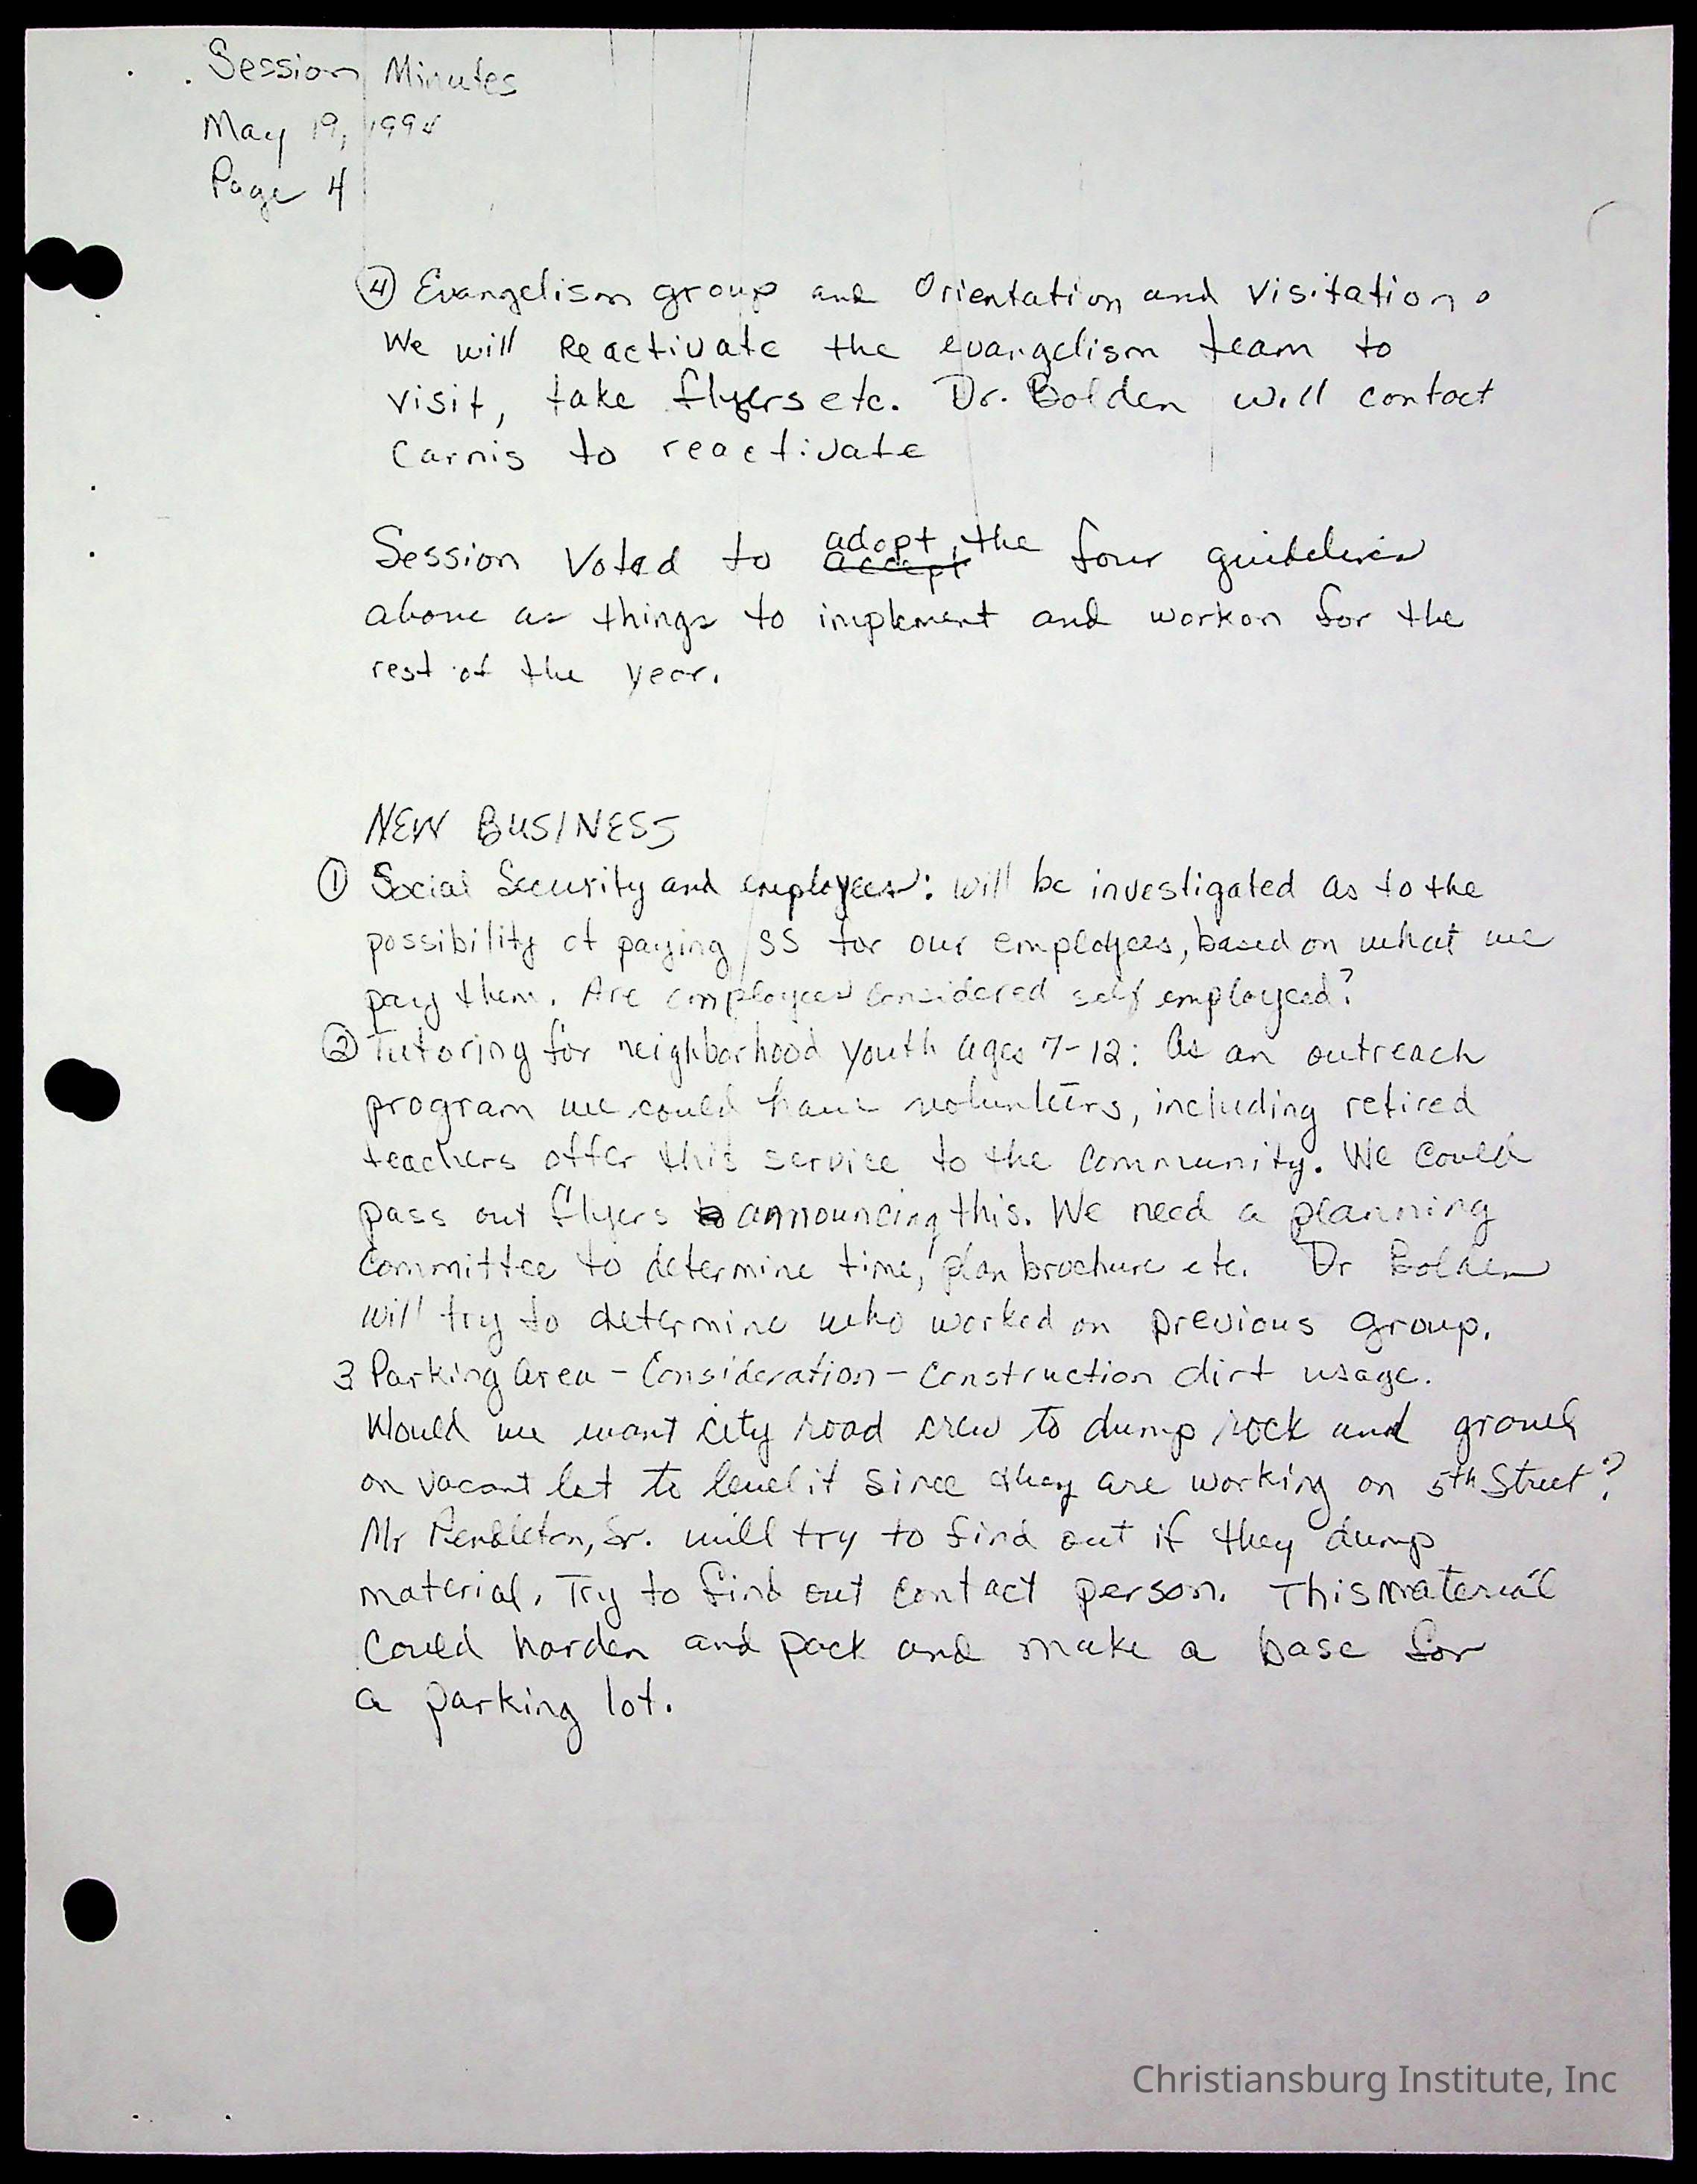 Session Minutes
May 19, 1994
Page 4
④ Evangelism group and Orientation and visitation.
We will Reactivate the evangelism team to
visit, take flyers etc. Dr. Bolden will contact
Carnis to reactivate
Session Voted to accept adopt the four guidelines
above as things to implement and work on for the
rest of the year.
NEW BUSINESS
① Social Security and employees: will be investigated as to the
possibility of paying SS for our employees, based on what we
pay them. Are employees considered self employeed?
② Tutoring for neighborhood youth ages 7-12: As an outreach
program we could have volunteers, including retired
teachers offer this service to the community. We could
pass out flyers to announcing this. We need a planning
committee to determine time, plan brochure etc. Dr Bolden
will try to determine who worked on previous group.
3 Parking Area - Consideration - Construction dirt usage.
Would we want city road crew to dump rock and gravel
on vacant lot to level it since they are working on 5th Street?
Mr Pendleton, Sr. will try to find out if they dump
material. Try to find out contact person. This material
could harden and pack and make a base for
a parking lot.
Christiansburg Institute, Inc